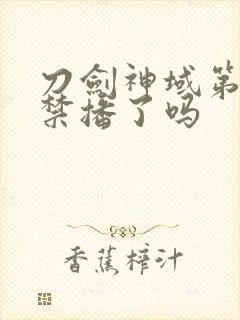 刀劍神域第
禁播了吗
香蕉榨汁